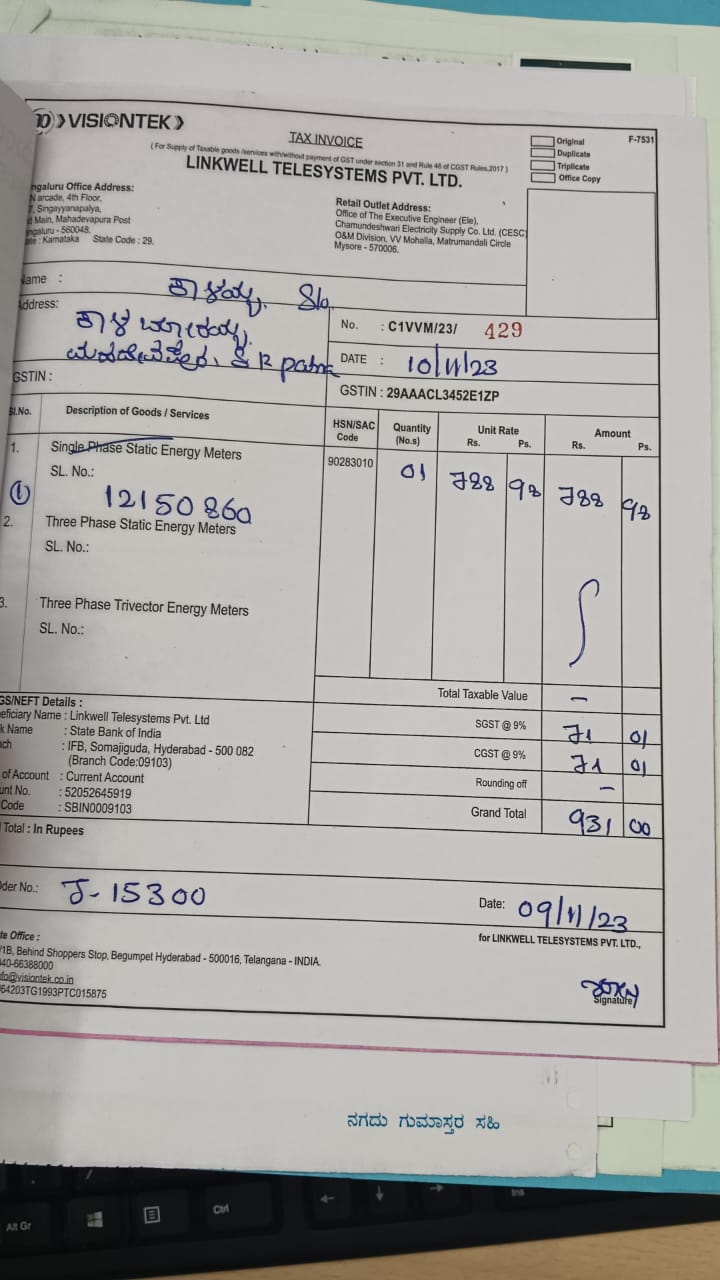 VISIONTEK
TAX INVOICE
( For Supply of Taxable goods /services with/without payment of GST under section 31 and Rule 46 of CGST Rules,2017 )
LINKWELL TELESYSTEMS PVT. LTD.
Original
Duplicate
Triplicate
Office Copy
F-7531
ngaluru Office Address:
N arcade, 4th Floor,
7, Singayyanapalya,
d Main, Mahadevapura Post
ngaluru - 560048.
ate : Karnataka State Code : 29.
Retail Outlet Address:
Office of The Executive Engineer (Ele),
Chamundeshwari Electricity Supply Co. Ltd. (CESC)
O&M Division, VV Mohalla, Matrumandali Circle
Mysore - 570006.
Name : S/o
Address:
No. : C1VVM/23/ 429
DATE : 10/11/23
GSTIN :
GSTIN : 29AAACL3452E1ZP
Sl.No. Description of Goods / Services HSN/SAC Code Quantity (No.s) Unit Rate Rs. Ps. Amount Rs. Ps.
1. Single Phase Static Energy Meters 90283010 01 788 98 788 98
SL. No.:
① 12150860
2. Three Phase Static Energy Meters
SL. No.:
3. Three Phase Trivector Energy Meters
SL. No.:
Total Taxable Value –
GS/NEFT Details :
eficiary Name : Linkwell Telesystems Pvt. Ltd
SGST @ 9% 71 01
k Name : State Bank of India
nch : IFB, Somajiguda, Hyderabad - 500 082
CGST @ 9% 71 01
(Branch Code:09103)
of Account : Current Account
Rounding off –
unt No. : 52052645919
Code : SBIN0009103
Grand Total 931 00
Total : In Rupees
der No.: J-15300
Date: 09/11/23
for LINKWELL TELESYSTEMS PVT. LTD.,
te Office :
/1B, Behind Shoppers Stop, Begumpet Hyderabad - 500016, Telangana - INDIA.
040-66388000
nfo@visiontek.co.in
64203TG1993PTC015875
Signature
ನಗದು ಗುಮಾಸ್ತರ ಸಹಿ
Alt Gr
Ctrl
Ins